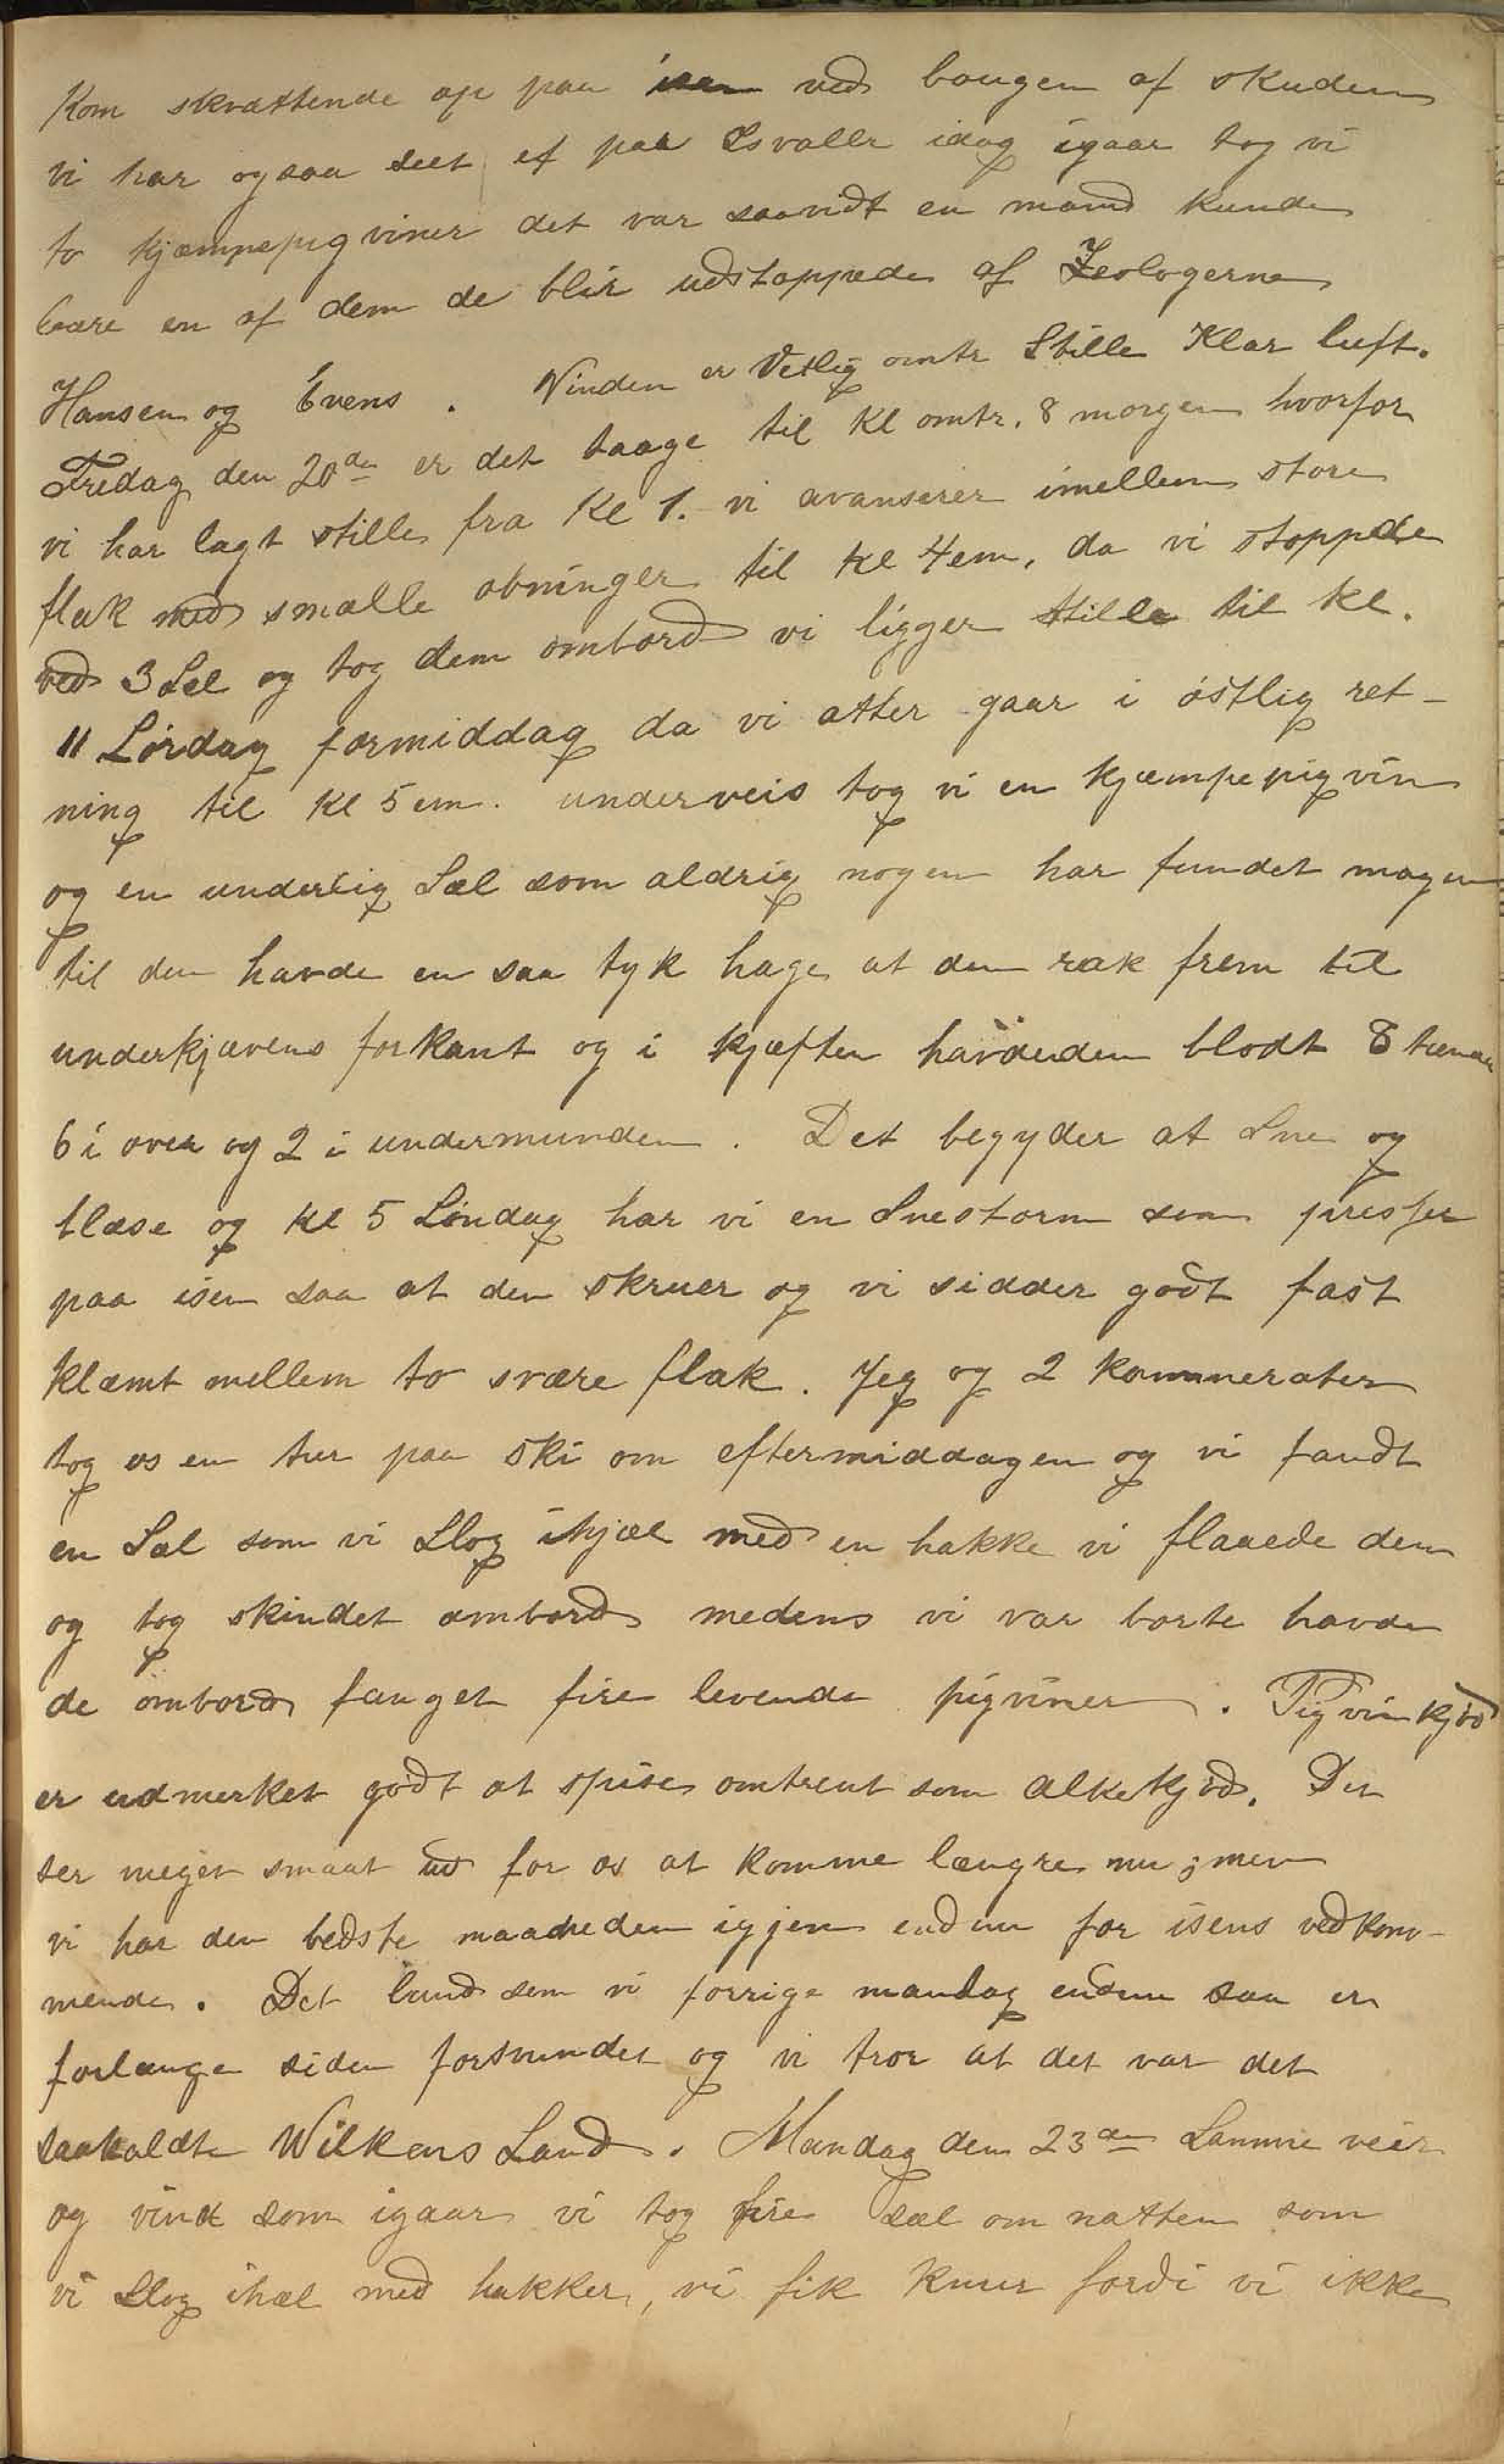 Kom skvættende op paa isen ved bougen af skuden
vi har ogsaa seet et paa Isvaller idag igaar tog vi
to kjæmpepigviner det var saavidt en mand kunde
bære en af dem de blir udstoppede af Zeologerne
Hansen og Evens. Vinden er Vestlig omtr Stille Klar luft.
Fredag den 20de er det taage til Kl omtr. 8 morgen hvorfor
vi har lagt stille fra Kl 1. vi avanserer imellem store
flak med smalle obninger til kl 4em, da vi stoppede
ved 3 Sel og tog dem ombord vi ligger stille til kl.
11 Lørdag formiddag da vi atter gaar i østlig ret-
ning til kl 5 em. underveis tog vi en kjæmpepigvin
og en underlig Sæl som aldrig nogen har fundet magen
til den havde en saa tyk hage at den rak frem til
underkjævens forkant og i kjæften havde den blodt 8 tænder
6 i over og 2 i undermunden. Det begyder at Sne og
blæse og kl 5 Søndag har vi en Snestorm som presser
paa isen saa at den skruer og vi sidder godt fast
klæmt mellem to svære flak. Jeg og 2 kammerater
tog os en tur paa ski om eftermiddagen og vi fandt
en Sæl som vi Slog ihjæl med en hakke vi flaaede den
og tog skindet ombord medens vi var borte havde
de ombord fanget fire levende pigviner. Pigvinkjød
er udmerket godt at spise omtrent som alkekjød. Det
ser meget smaat ud for os at komme længre nu; men
vi har den bedste maaneden igjen endnu for isens vedkom-
mende. Det land som vi forrige mandag endnu saa er
forlænge siden forsvundet og vi tror at det var det
saakaldte Wilkens Land. Mandag den 23de Samme veir
og vind som igaar vi tog fire Sæl om natten som
vi Slog ihæl med hakker, vi fik knur fordi vi ikke